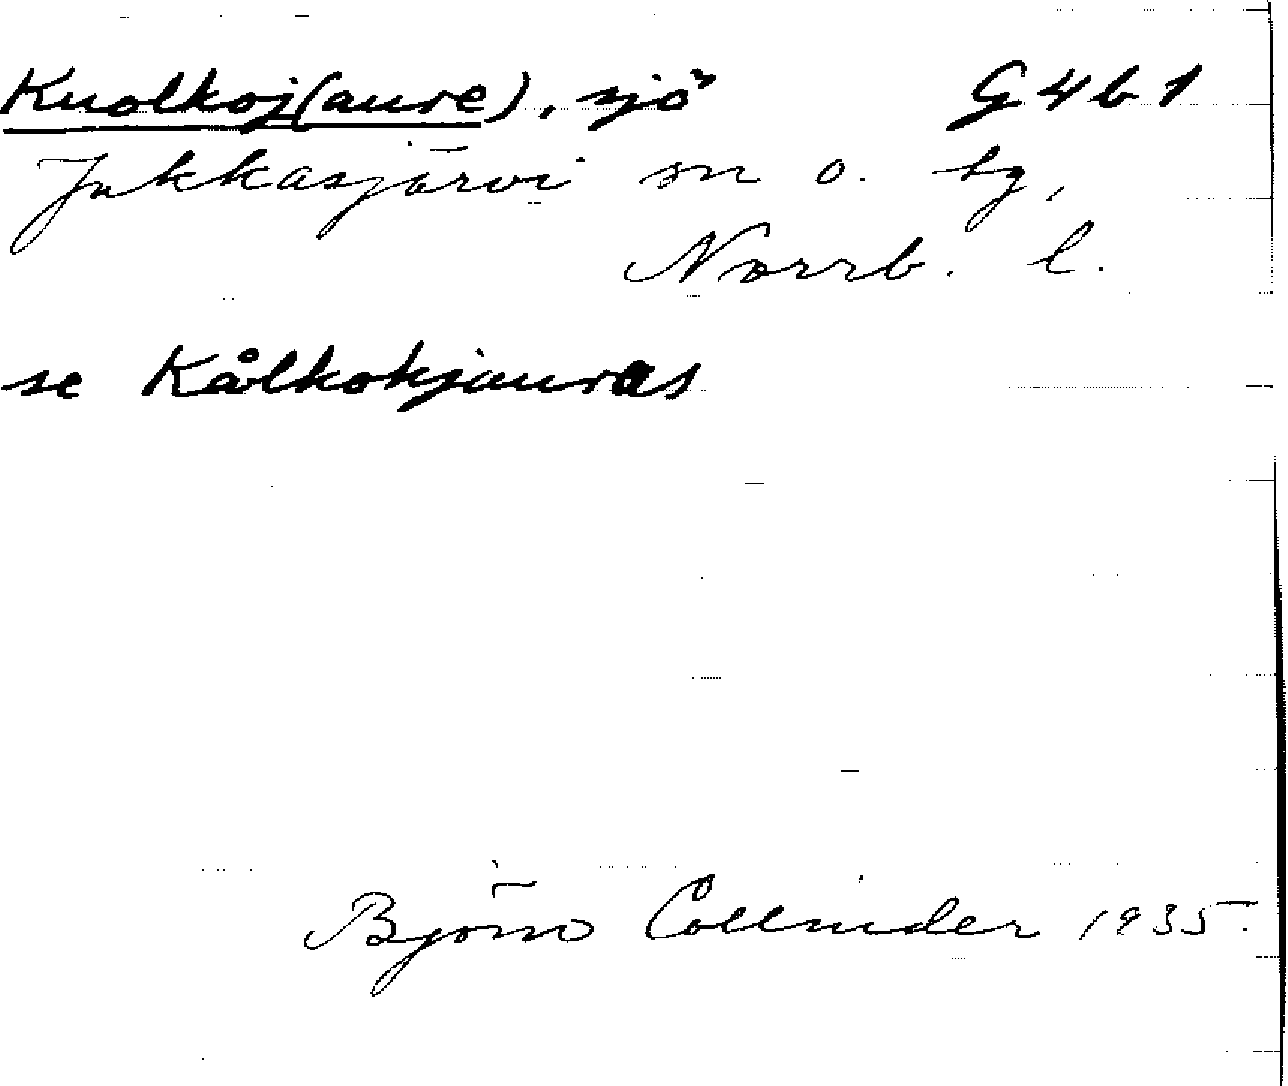 Kuolkoj(aure), sjö G 4 b 1
Jukkasjärvi sn o. tg,
Norrb. l.
se Kålkokjauras
Björn Collinder 1935.